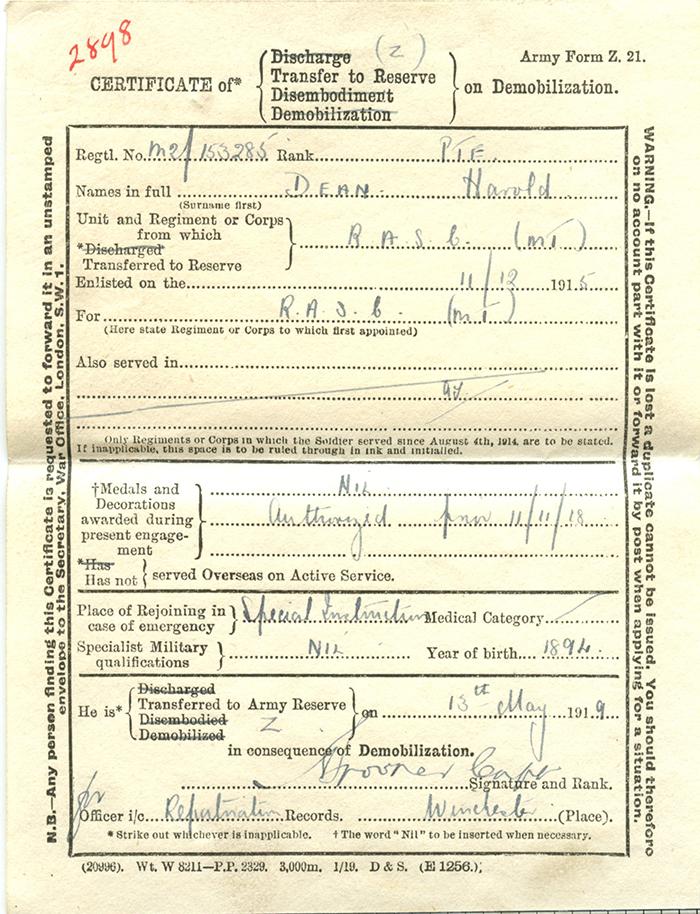 2898
Discharge (Z)
Army Form Z. 21.
CERTIFICATE of* Transfer to Reserve on Demobilization.
Disembodiment
Demobilization
Regtl. No. M2/153285 Rank PTE.
Names in full DEAN. Harold
(Surname first)
Unit and Regiment or Corps
from which R.A.S.C. (MT)
*Discharged
Transferred to Reserve
Enlisted on the 11/12 1915
For R.A.S.C. (MT)
(Here state Regiment or Corps to which first appointed)
Also served in
Only Regiments or Corps in which the Soldier served since August 4th, 1914, are to be stated.
If inapplicable, this space is to be ruled through in ink and initialled.
†Medals and Nil
Decorations
awarded during Authorized prior 11/11/18
present engage-
ment
*Has
Has not served Overseas on Active Service.
Place of Rejoining in Special Instruction Medical Category
case of emergency
Specialist Military NIL Year of birth 1894.
qualifications
Discharged
He is* Transferred to Army Reserve on 13th May 1919
Disembodied Z
Demobilized
in consequence of Demobilization.
Capt
Signature and Rank.
for
Officer i/c Repatriation Records. Winchester (Place).
* Strike out whichever is inapplicable. † The word "Nil" to be inserted when necessary.
(20996). Wt. W 8211—P.P. 2329. 3,000m. 1/19. D & S. (E 1256.)
N.B.—Any person finding this Certificate is requested to forward it in an unstamped
envelope to the Secretary, War Office, London, S.W. 1.
WARNING.—If this Certificate is lost a duplicate cannot be issued. You should therefore
on no account part with it or forward it by post when applying for a situation.